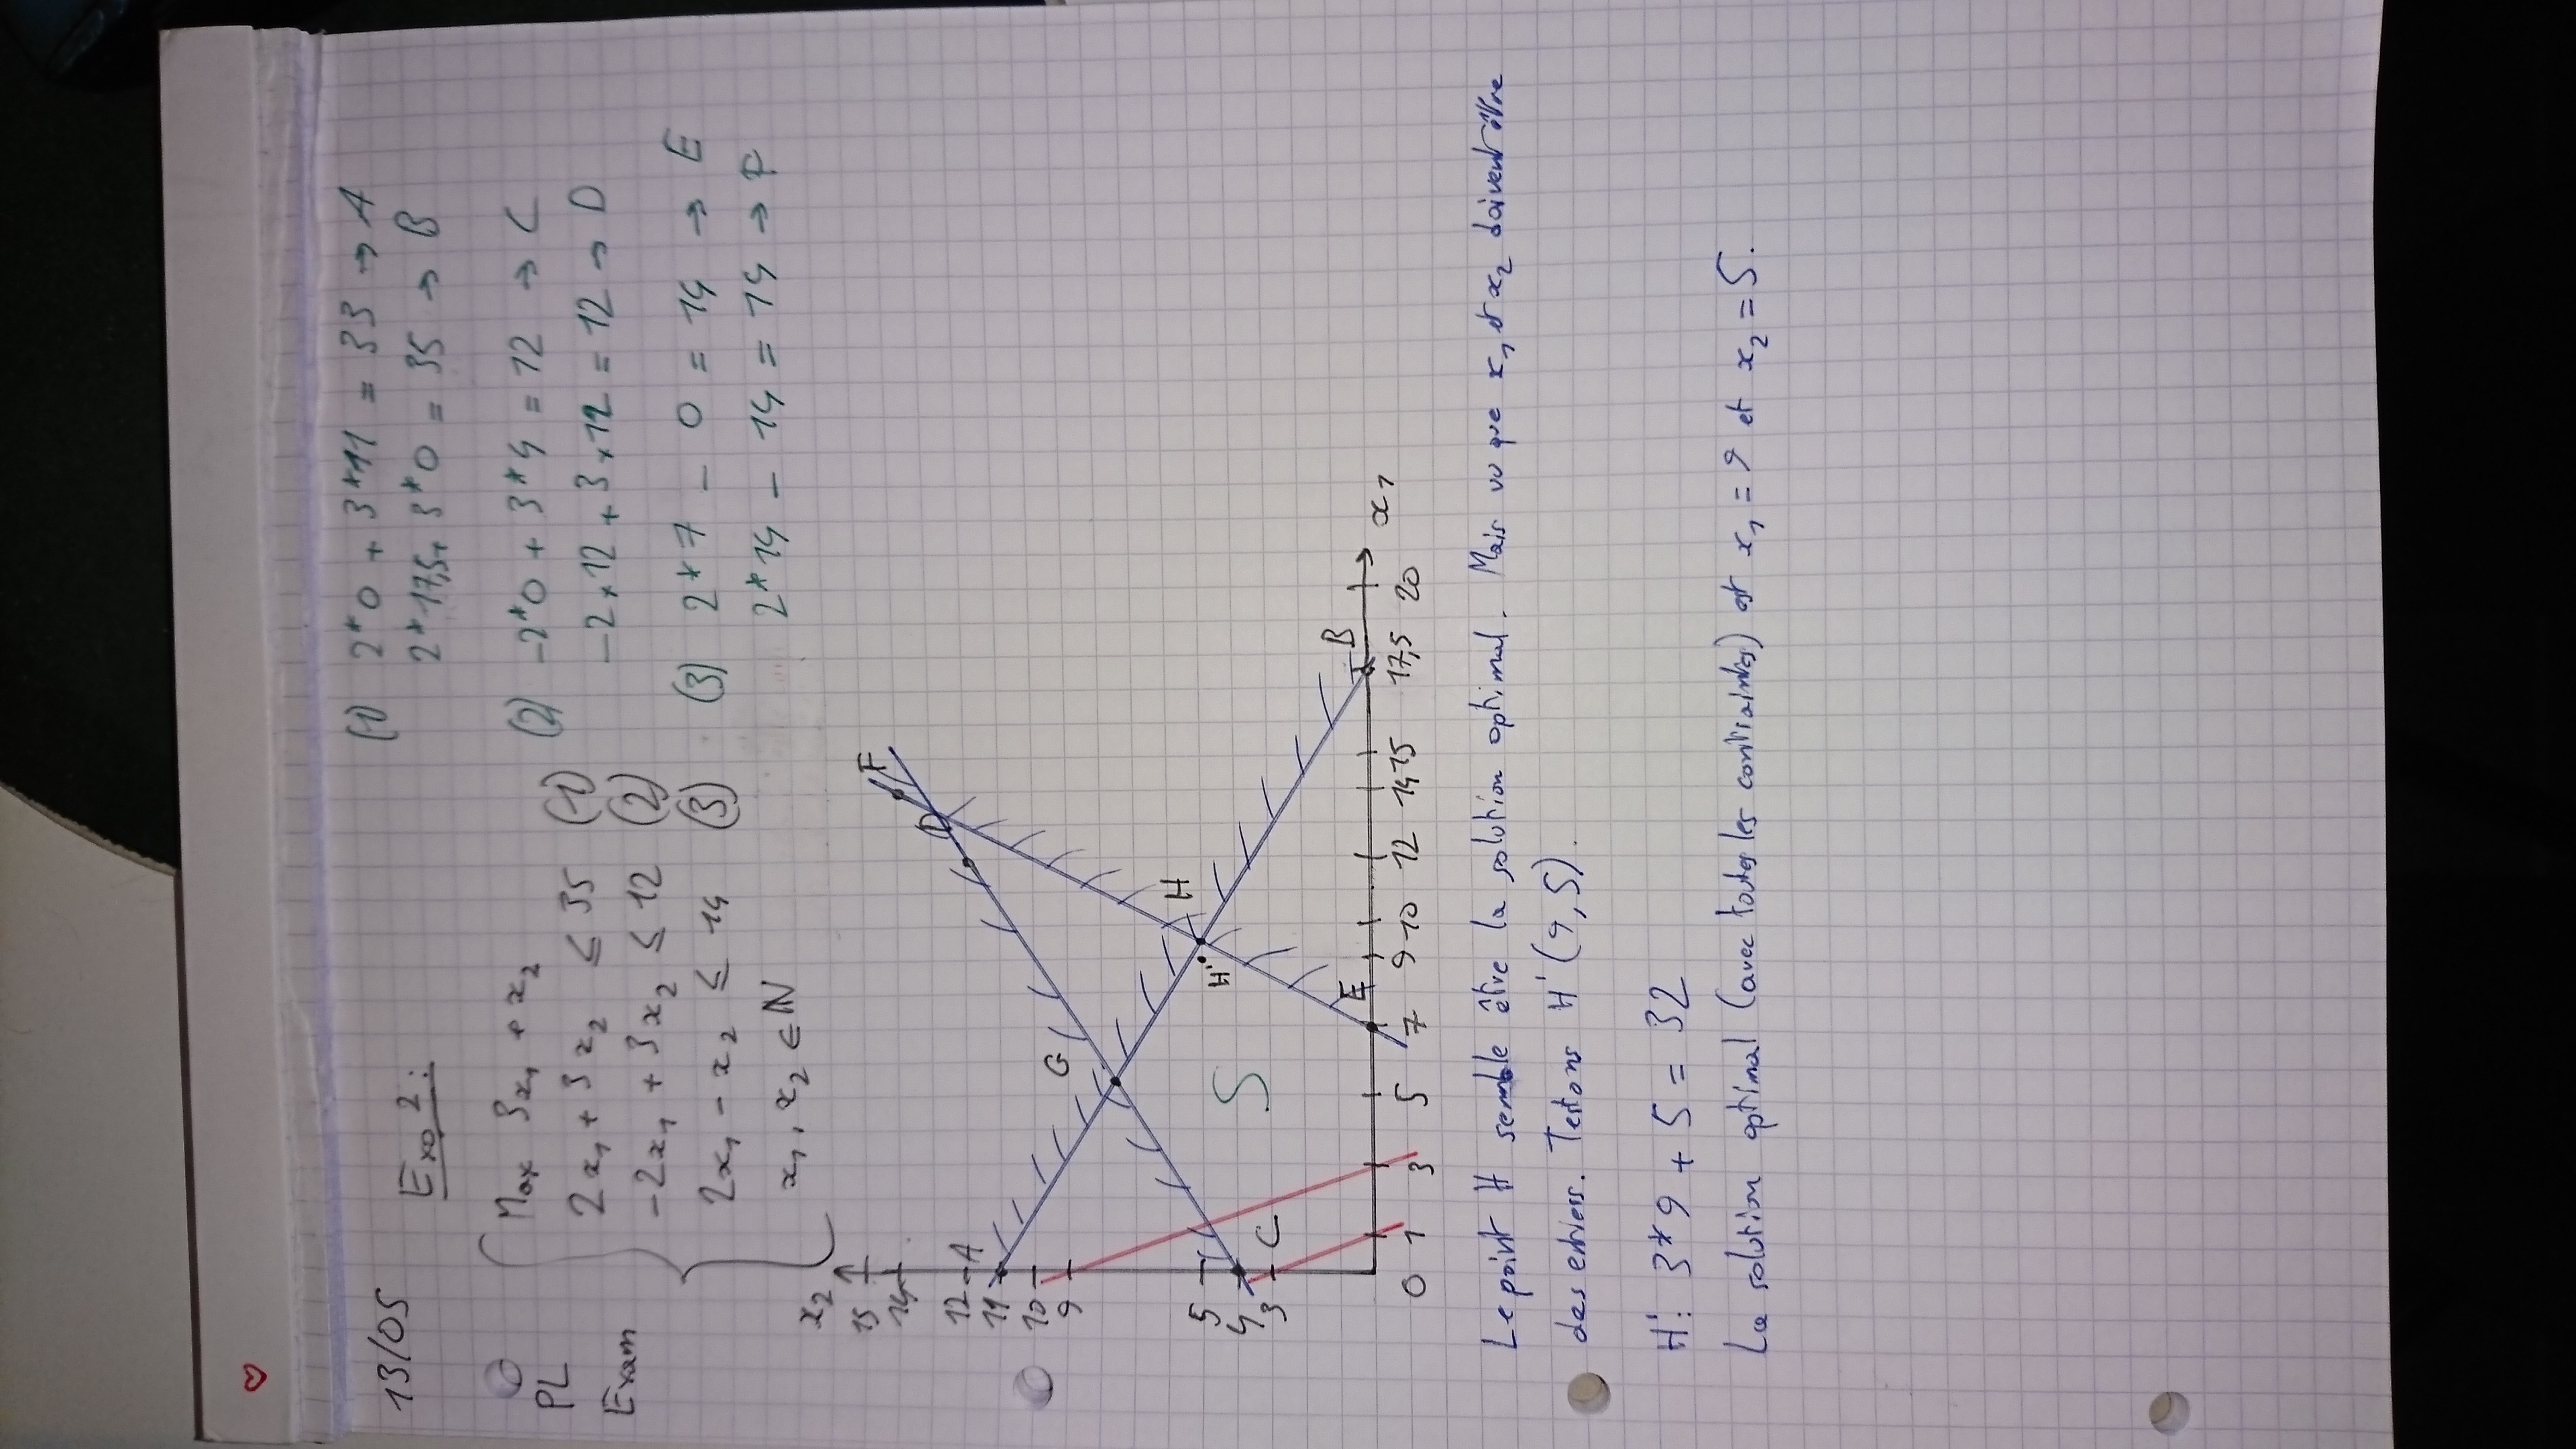 13/05
PL
Exam
Exo 2 :
Max 3x₁ + x₂
2x₁ + 3x₂ ≤ 35 (1)
-2x₁ + 3x₂ ≤ 12 (2)
2x₁ - x₂ ≤ 14 (3)
x₁, x₂ ∈ ℕ
(1) 2*0 + 3*11 = 33 → A
2*17,5 + 3*0 = 35 → B
(2) -2*0 + 3*4 = 12 → C
-2×12 + 3×12 = 12 → D
(3) 2*7 - 0 = 14 → E
2*14 - 14 = 14 → F
x₂
15
14
12
11
10
9
5
4
3
A
C
G
D
F
H
H'
S
E
B
0 1 3 5 7 9 10 12 14 15 17,5 20
x₁
Le point H semble être la solution optimal. Mais vu que x₁ et x₂ doivent être
des entiers. Testons H' (9,5).
H': 3*9 + 5 = 32
La solution optimal (avec toutes les contraintes) est x₁ = 9 et x₂ = 5.